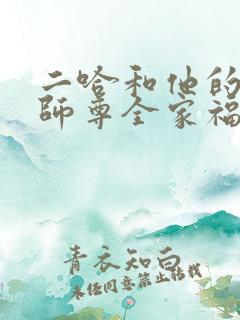 二哈和他的
師尊全家福
青衣知白
未经同意禁止转载